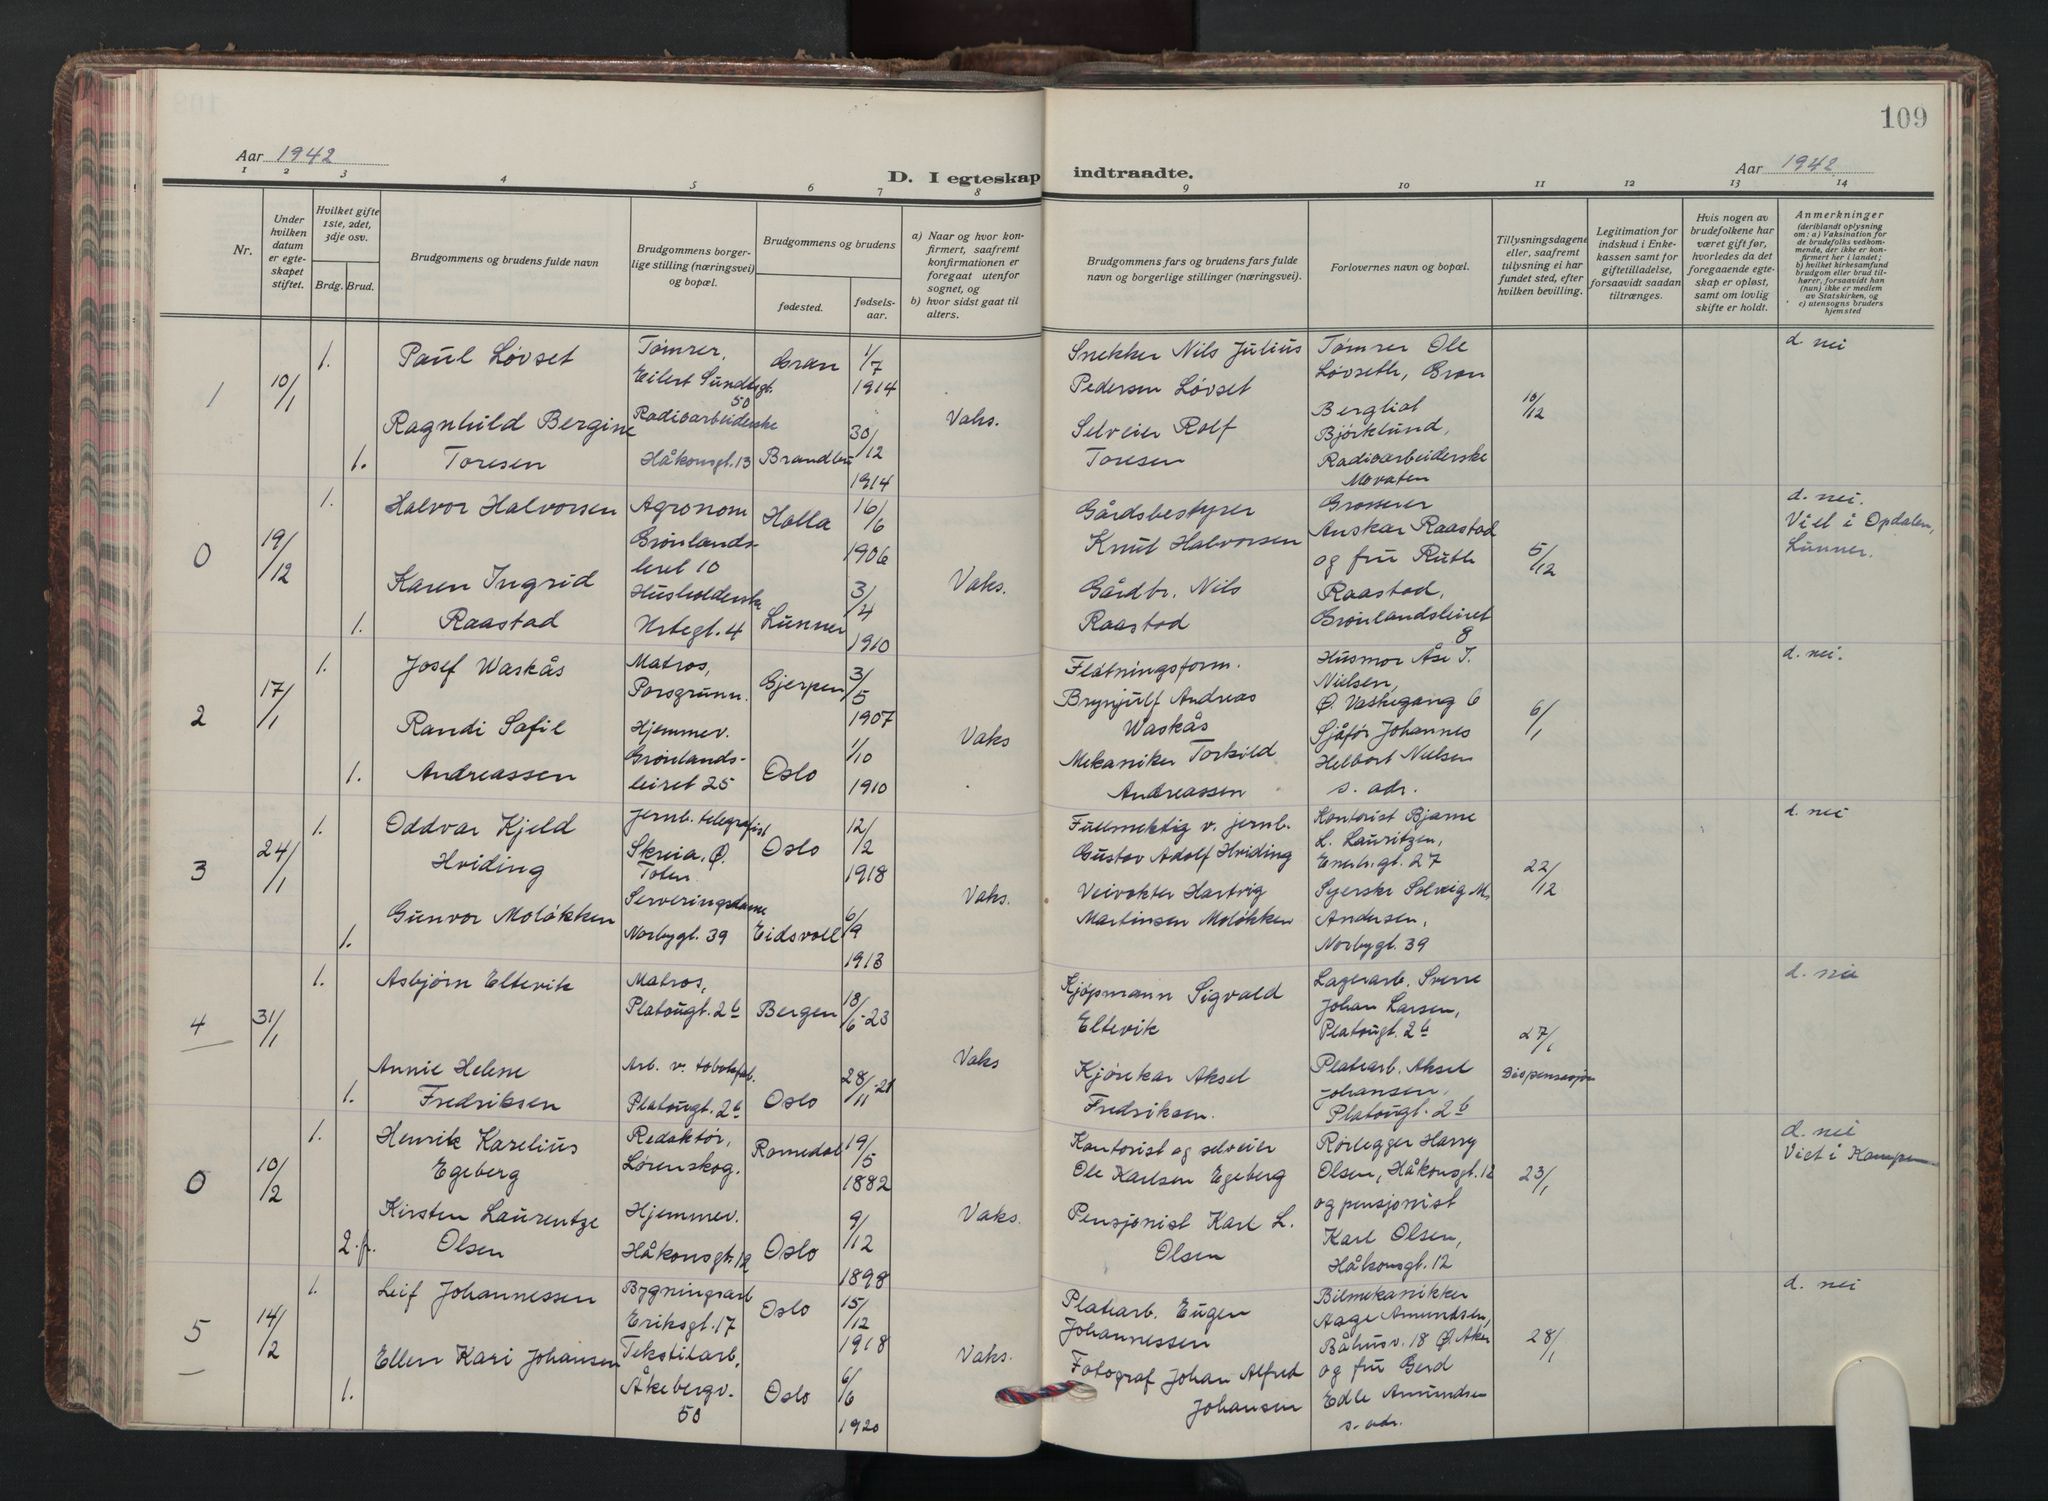 109
Aar 1942
D. I egteskap indtraadte.
Aar 1942
1 2 3 4 5 6 7 8 9 10 11 12 13 14
Nr.
Under hvilken datum er egteskapet stiftet.
Hvilket gifte 1ste, 2det, 3dje osv.
Brdg. Brud.
Brudgommens og brudens fulde navn
Brudgommens borgerlige stilling (næringsvei) og bopæl.
Brudgommens og brudens
fødested. fødselsaar.
a) Naar og hvor konfirmert, saafremt konfirmationen er foregaat utenfor sognet, og
b) hvor sidst gaat til alters.
Brudgommens fars og brudens fars fulde navn og borgerlige stillinger (næringsvei).
Forlovernes navn og bopæl.
Tillysningsdagene eller, saafremt tillysning ei har fundet sted, efter hvilken bevilling.
Legitimation for indskud i Enkekassen samt for giftetilladelse, forsaavidt saadan tiltrænges.
Hvis nogen av brudefolkene har været gift før, hvorledes da det foregaaende egteskap er opløst, samt om lovlig skifte er holdt.
Anmerkninger
(deriblandt oplysning om: a) Vaksination for de brudefolks vedkommende, der ikke er konfirmert her i landet; b) hvilket kirkesamfund brudgom eller brud tilhører, forsaavidt han (hun) ikke er medlem av Statskirken, og c) utensogns bruders hjemsted
1
10/1
1. Paul Løvset
Tømrer,
Eilert Sundtsgt.
50
Gran
1/7
1914
Ragnhild Bergine
1. Toresen
Radioarbeiderske
Håkonsgt. 13
Brandbu
30/12
1914
Vaks.
Snekker Nils Julius
Pedersen Løvset
Selveier Rolf
Toresen
Tømrer Ole
Løvseth, Gran
Bergliot
Bjørklund,
Radioarbeiderske
10/12
d. nei
0
19/12
1. Halvor Halvorsen
Agronom
Grønlands-
leret 10
Holla
16/6
1906
Karen Ingrid
1. Raastad
Husholderske
Urtegt. 4
Lunner
3/4
1910
Vaks.
Gårdsbestyrer
Knut Halvorsen
Gårdbr. Nils
Raastad
Grosserer
Anskar Raastad
og fru Ruth
Raastad,
Grønlandsleiret
8
5/12
d. nei.
Viet i Opdalen,
Lunner.
2
17/1
1. Josef Waskås
Matros,
Porsgrunn.
Gjerpen
3/5
1907
Randi Safil
1. Andreassen
Hjemmev.
Grønlands-
leiret 25
Oslo
1/10
1910
Vaks
Fløtningsform.
Brynjulf Andreas
Waskås
Mekaniker Torkild
Andreassen
Husmor Åse I.
Nielsen,
Ø. Vaskegang 6
Sjåfør Johannes
Helbort Nielsen
s. adr.
6/1
d. nei.
3
24/1
1. Oddvar Kjeld
Hviding
Jernb. telegrafist
Skreia, Ø.
Toten.
Oslo
12/2
1918
Gunvor Moløkken
1.
Serveringsdame
Norbygt. 39
Eidsvoll
6/9
1913
Vaks.
Fullmektig v. jernb.
Gustav Adolf Hviding
Veivokter Hartvig
Martinsen Moløkken
Kontorist Bjarne
L. Lauritzen,
Enerh.gt. 27
Syerske Solveig M.
Andersen,
Norbygt. 39
22/12
d. nei
4
31/1
1. Asbjørn Eltevik
Matros,
Platougt. 2b
Bergen
18/6-23
Annie Helene
1. Fredriksen
Arb. v. tobaksfab.
Platougt. 2b
Oslo
28/11-21
Vaks
Kjøpmann Sigvald
Eltevik
Kjørekar Aksel
Fredriksen.
Lagerarb. Sverre
Johan Larsen,
Platougt. 2b
Platearb. Aksel
Johansen,
Platougt. 2b
27/1
Dispensasjon
d. nei
0
10/2
1. Henrik Karelius
Egeberg
Redaktør,
Lørenskog.
Romedal
19/5
1882
Kirsten Laurentze
2. fr. Olsen
Hjemmev.
Håkonsgt. 12
Oslo
9/12
1898
Vaks.
Kontorist og selveier
Ole Karlsen Egeberg
Pensjonist Karl L.
Olsen
Rørlegger Harry
Olsen, Håkonsgt. 12
og pensjonist
Karl Olsen,
Håkonsgt. 12
23/1
d. nei
Viet i Kampen
5
14/2
1. Leif Johannessen
Bygningsarb
Eriksgt. 17
Oslo
15/12
1918
Ellen Kari Johansen
1.
Tekstilarb,
Åkebergv.
50
Oslo
6/6
1920
Vaks.
Platearb. Eugen
Johannessen
Fotograf Johan Alfred
Johansen
Bilmekanikker
Aage Amundsen,
Båhusv. 18 Ø. Aker
og fru Gerd
Edle Amundsen
s. adr.
28/1
d. nei